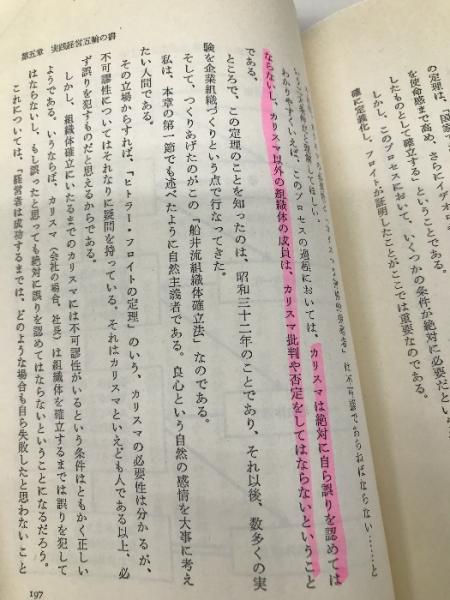 の定理は、「国家
を使命感まで高め、さらにイデオロ
したものとして確立する」ということである。
しかし、このプロセスにおいて、いくつかの条件が絶対に必要だといえ
確に定義化し、フロイトが証明したことがここでは重要なのである。
わかりやすくいえば、このプロセスの過程においては、カリスマは絶対に自ら誤りを認めては
ならないし、カリスマ以外の組織体の成員は、カリスマ批判や否定をしてはならないということ
である。
ところで、この定理のことを知ったのは、昭和三十二年のことであり、それ以後、数多くの実
験を企業組織づくりという点で行なってきた。
そして、つくりあげたのがこの「船井流組織体確立法」なのである。
私は、本章の第一節でも述べたように自然主義者である。良心という自然の感情を大事に考え
たい人間である。
その立場からすれば、「ヒトラー・フロイトの定理」のいう、カリスマの必要性は分かるが、
不可謬性についてはそれなりに疑問を持っている。それはカリスマといえども人である以上、必
ず誤りを犯すものだと思えるからである。
しかし、組織体確立にいたるまでのカリスマには不可謬性がいるという条件はともかく正しい
ようである。いうならば、カリスマ（会社の場合、社長）は組織体を確立するまでは誤りを犯して
はならないし、もし誤ったと思っても絶対に誤りを認めてはならないということになるだろう。
これについては、「経営者は成功するまでは、どのような場合も自ら失敗したと思わないこと
第五章　実践経営五輪の書
197